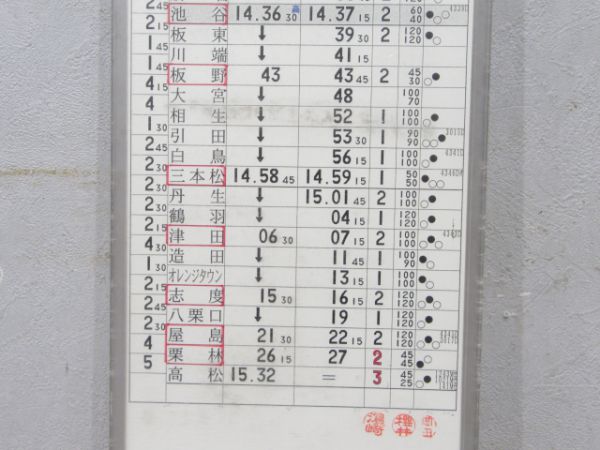 2 45
池谷 14.36 30 14.37 15 2 60 40
1 45
板東 ↓ 39 30 2 120 120
1 45
川端 41 15
4 15
板野 43 43 45 2 45 30
大宮 ↓ 48 100 70
4
相生 ↓ 52 1 100 100
1 30
引田 ↓ 53 30 1 90 90
2 45
白鳥 ↓ 56 15 1 100 100
三本松 14.58 45 14.59 15 1 50 50
丹生 ↓ 15.01 45 2 100 100
2 30
鶴羽 ↓ 04 15 1 120 120
2 15
津田 06 30 07 15 2 100 100
4 30
造田 ↓ 11 45 1 100 90
1 30
オレンジタウン ↓ 13 15 1 100 100
2 15
志度 15 30 16 15 2 120 120
2 45
八栗口 ↓ 19 1 120 120
2 30
屋島 21 30 22 15 2 120 120
4
栗林 26 15 27 2 45 45
5
高松 15.32 = 3 45 25